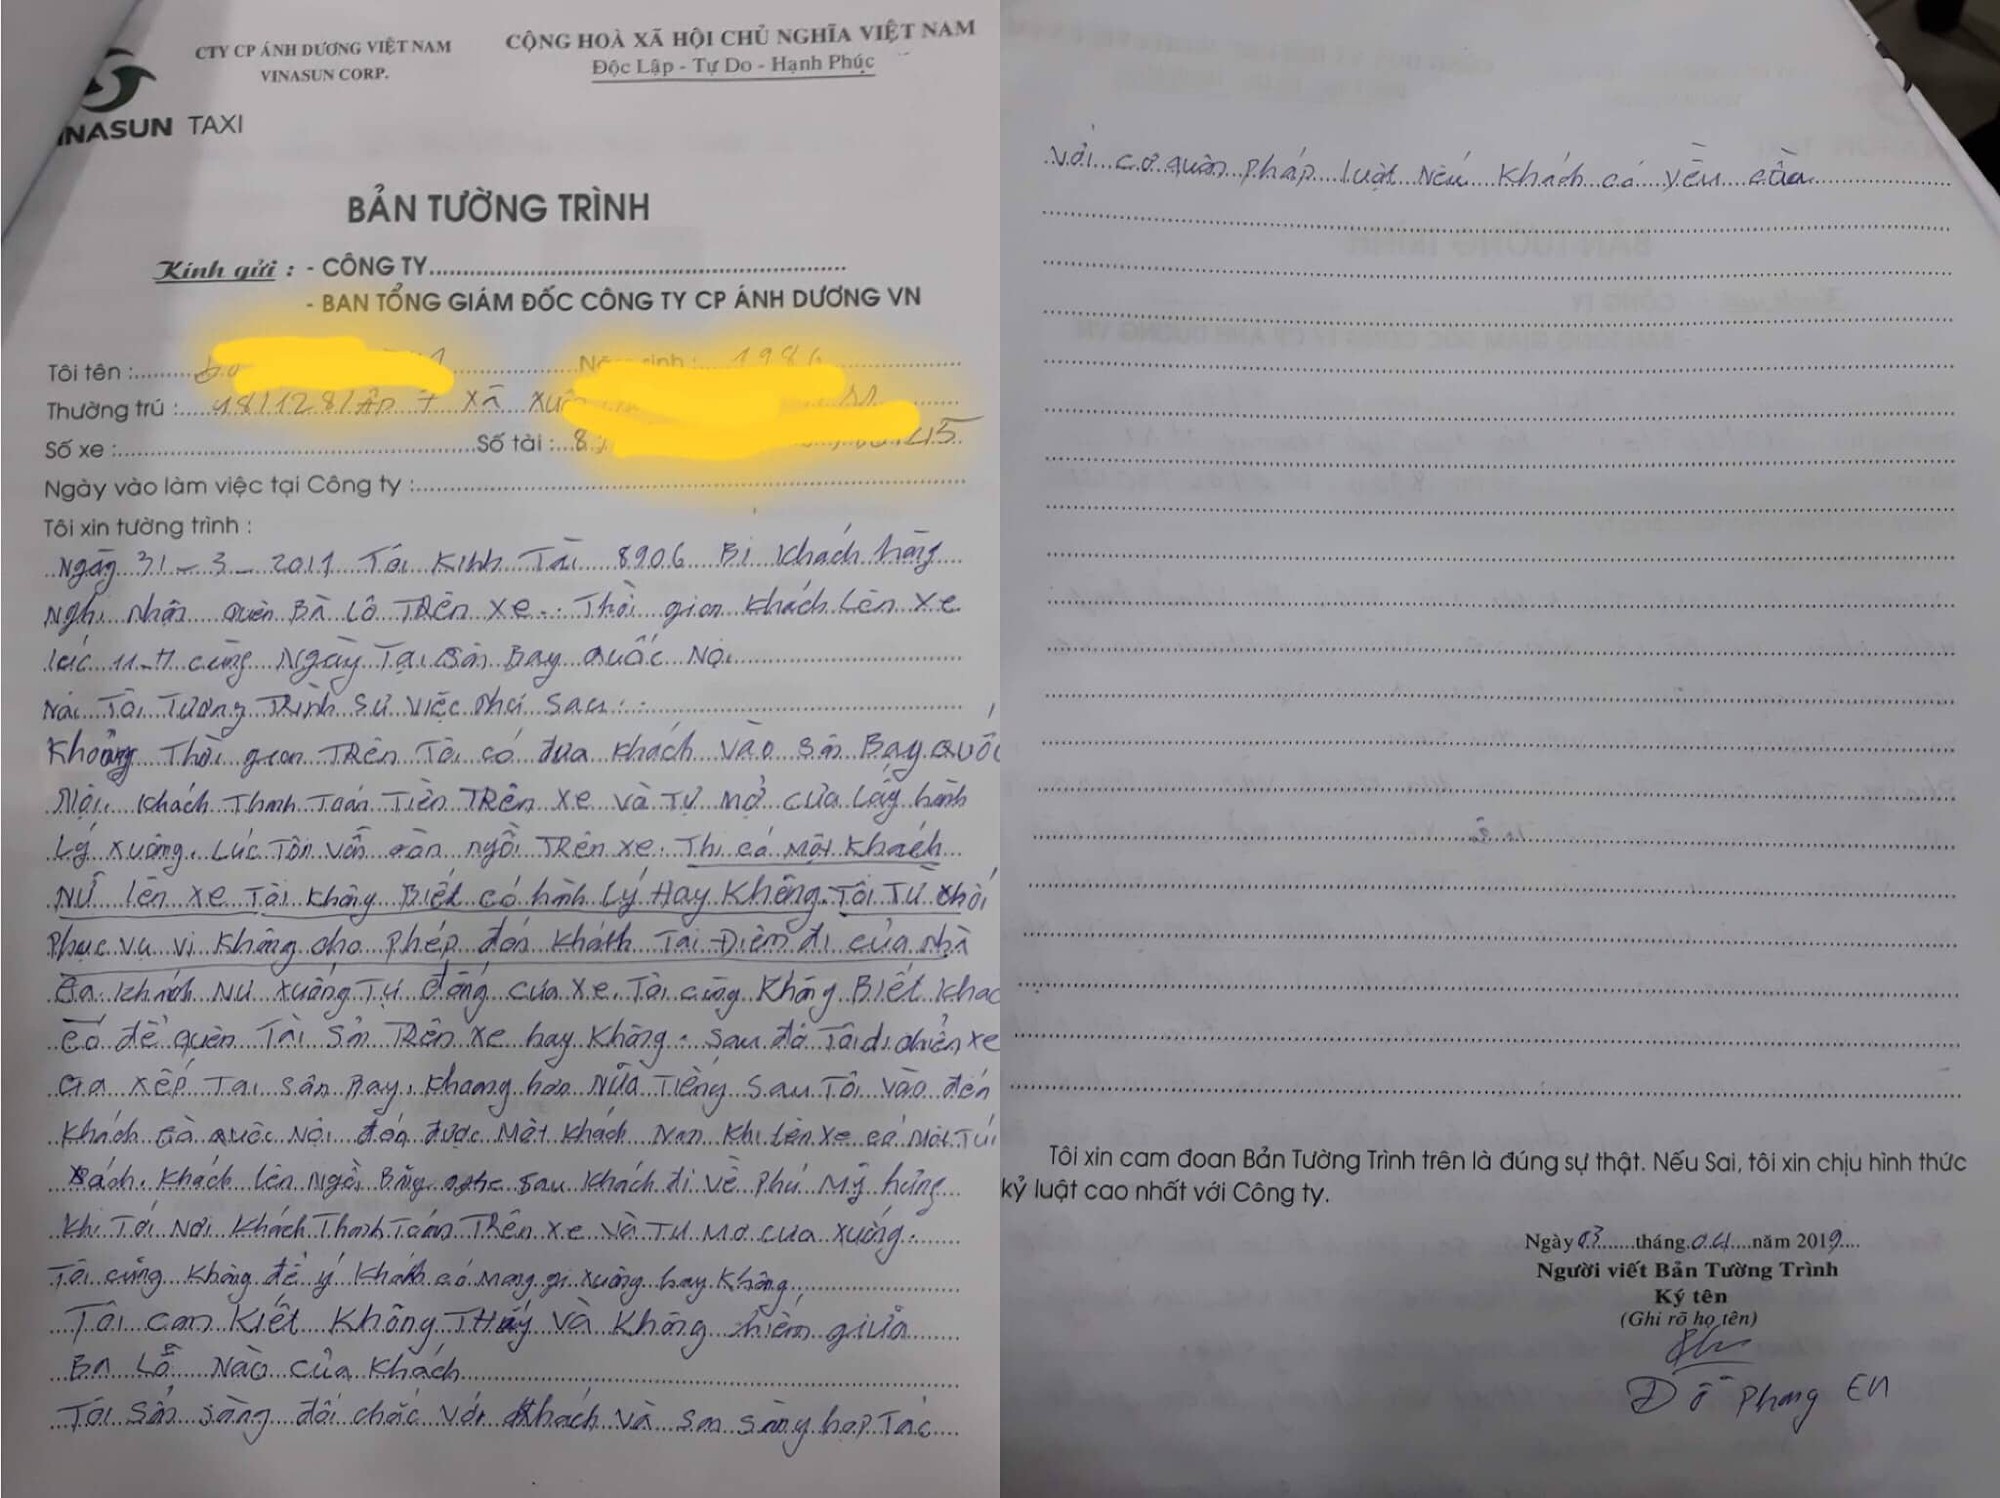 CTY CP ÁNH DƯƠNG VIỆT NAM
VINASUN CORP.
CỘNG HOÀ XÃ HỘI CHỦ NGHĨA VIỆT NAM
Độc Lập - Tự Do - Hạnh Phúc
INASUN TAXI
BẢN TƯỜNG TRÌNH
Kính gửi : - CÔNG TY
- BAN TỔNG GIÁM ĐỐC CÔNG TY CP ÁNH DƯƠNG VN
Tôi tên : Năm sinh : 1986
Thường trú : 48/128/Ấp 7 Xã Xuâ
Số xe : Số tài : 8 45
Ngày vào làm việc tại Công ty :
Tôi xin tường trình :
Ngày 31 - 3 - 2019 Tôi Kinh Tài 8906 Bị khách hàng
Nghi nhận quên Ba Lô Trên xe. Thời gian khách lên xe
lúc 11-H cùng Ngày Tại Sân Bay Quốc Nội
Nai Tôi Tương Trình Sự việc như sau :
Khoảng Thời gian Trên Tôi có đưa khách vào sân Bay Quốc
Nội. khách Thanh Toán Tiền Trên xe và Tự mở cửa lấy hành
Lý xuống. Lúc Tôn vẫn còn ngồi Trên xe. Thì có Một khách
Nữ lên xe Tôi không Biết có hành Lý Hay Không. Tôi Từ chối
Phục vụ vì không cho phép đón khách Tại Điểm đi của nhà
Ga. khách Nữ xuống Tự đóng cửa xe. Tôi cũng không Biết khác
có để quên Tài Sản Trên xe hay không. Sau đó Tôi di chuyển xe
Ga xếp Tại sân Bay. khoang hơn Nữa Tiếng sau Tôi vào đón
khách Gà Quốc Nội đón được Một khách Nam khi lên xe có Một Túi
Xách. khách lên Ngồi Băng ghế sau khách đi về Phú Mỹ hưng
khi Tới Nơi khách Thanh Toán Trên xe và Tự Mở cửa xuống.
Tôi cũng không để ý khách có mang gì xuống hay không
Tôi cam kiết không Thấy và không chiếm giữa
Ba Lô Nào của khách
Tôi sẳn sàng đối chấc với khách và sẳn sàng hợp Tác
với cơ quan pháp luật Nếu khách có yêu cầu
Tôi xin cam đoan Bản Tường Trình trên là đúng sự thật. Nếu Sai, tôi xin chịu hình thức
kỷ luật cao nhất với Công ty.
Ngày 03 tháng 04 năm 2019
Người viết Bản Tường Trình
Ký tên
(Ghi rõ họ tên)
Đỗ Phong EM